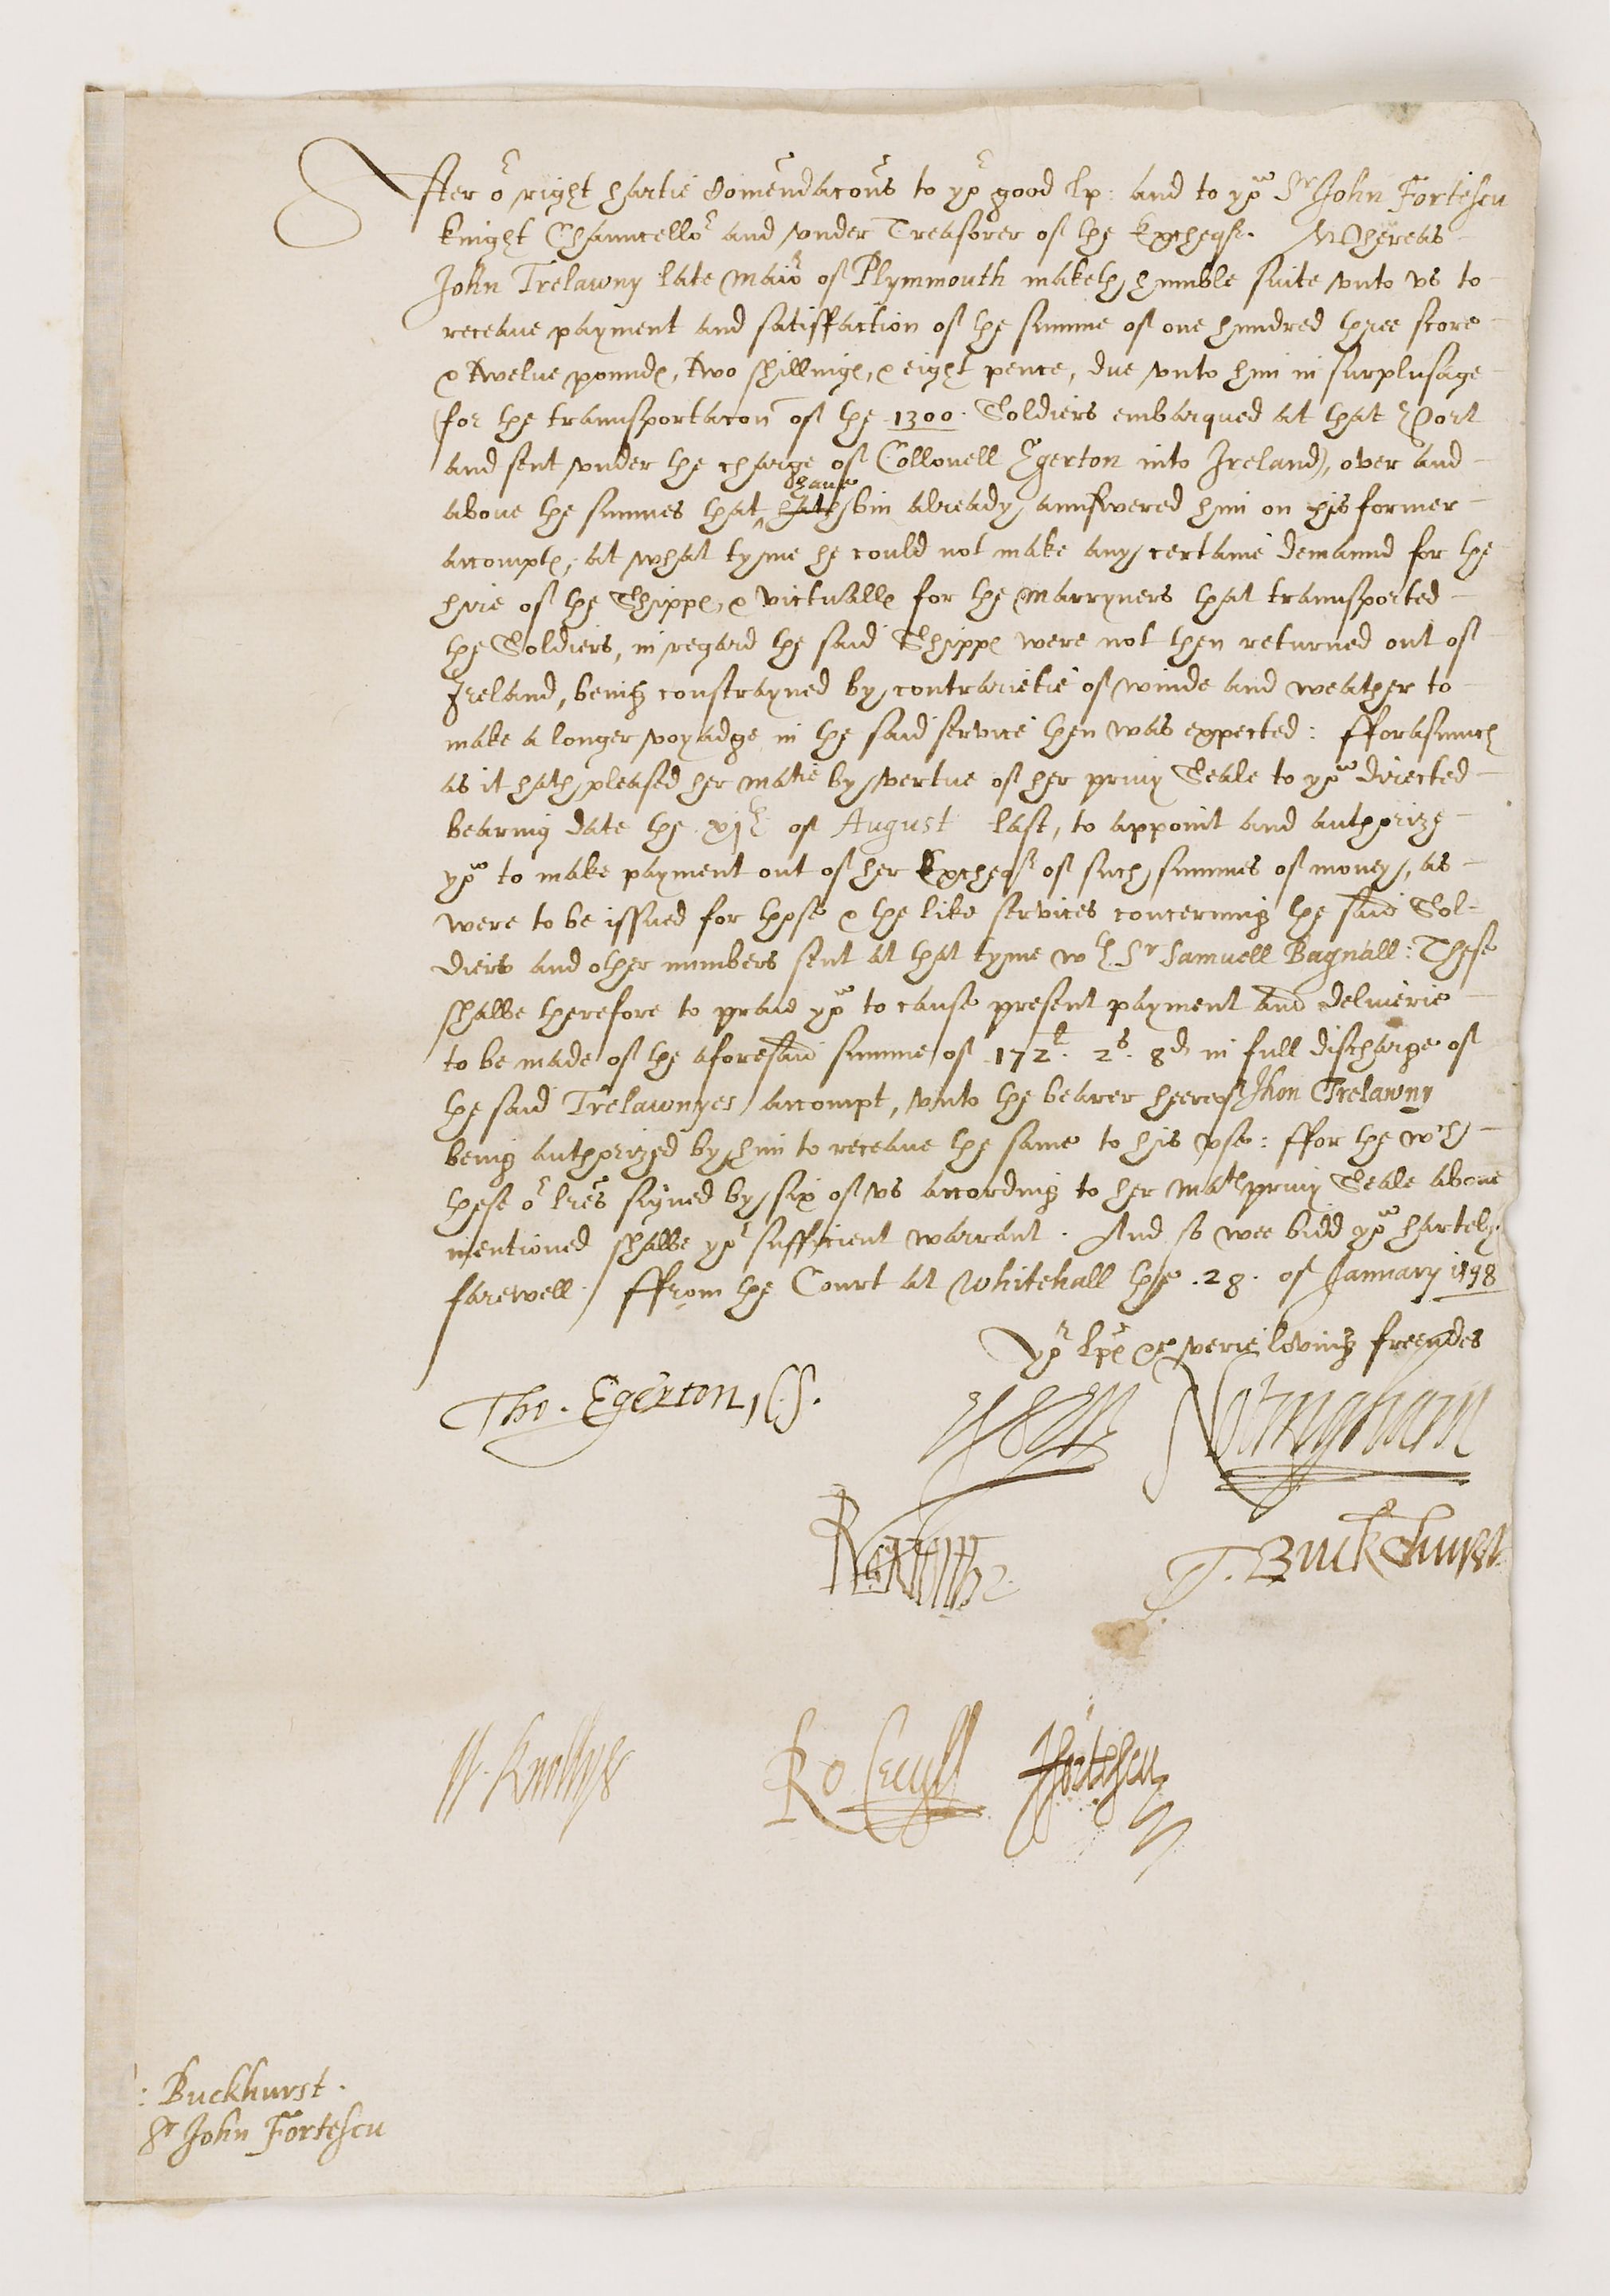 After or right hartie Comendacons to yor good Lp: and to you Sr John Fortescu
knight Chauncellor and vnder Treasorer of the Exchequr. Whereas
John Trelawny late Maior of Plymmouth maketh humble suite vnto vs to
receaue payment and satisffaction of the summe of one hundred three score
& twelue poundes, two shillinges, & eight pence, due vnto him in surplusage
(for the transportacon of the 1300. Soldiers embarqued at that Port
and sent vnder the charge of Collonell Egerton into Ireland), over and
haue
aboue the summes that ^ hath bin already aunswered him on his former
accomptes, at what tyme he could not make any certaine demaund for the
hire of the Shippes, & victualls for the Marryners that transported
the Soldiers, in regard the said Shippes were not then returned out of
Ireland, being constrayned by contrarietie of winde and weather to
make a longer voyadge in the said service then was expected: fforasmuch
as it hath pleased her Matie by vertue of her privy Seale to you directed
bearing date the xjth of August last, to appoint and authorize
you to make payment out of her Exchequr of such summes of money, as
were to be issued for these & the like services concerning the said Sol-
diers and other numbers sent at that tyme wth Sr Samuell Bagnall: These
shalbe therefore to praie you to cause present payment and deliuerie
to be made of the aforesaid summe of 172l. 2s. 8d in full discharge of
the said Trelawnyes accompt, vnto the bearer heereof Jhon Trelawny
being authorized by him to receaue the same to his vse: ffor the wch
these or lres signed by six of vs according to her Mats privy Seale aboue
mentioned shalbe yor sufficient warrant. And so wee bidd you hartely
farewell. ffrom the Court at Whitehall the .28. of January 1598
Yor Lps & verie loving freendes
Tho. Egerton, C.S.
Notingham
T. Buckhurst
W. Knollys
Ro Cecyll
J Fortescu
: Buckhurst.
Sr John Fortescu